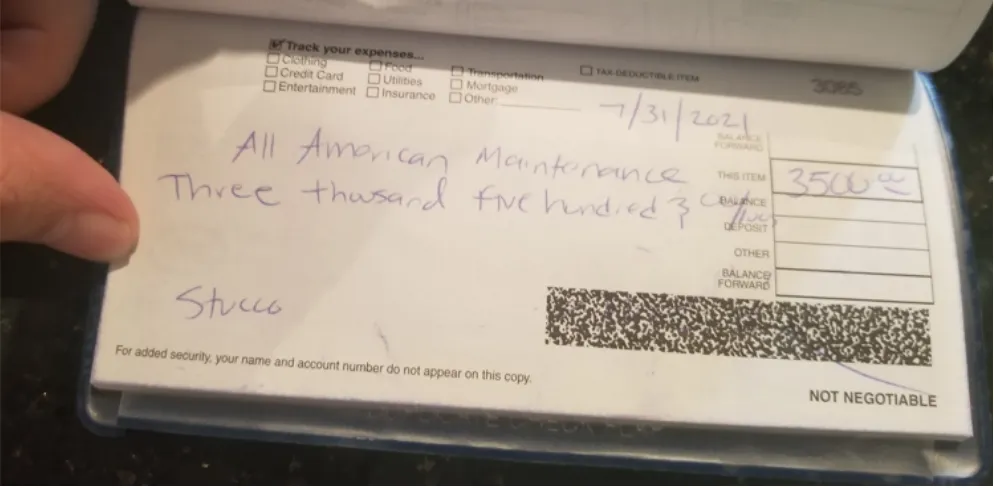 Track your expenses...
Clothing Food Transportation TAX-DEDUCTIBLE ITEM
Credit Card Utilities Mortgage 3085
Entertainment Insurance Other:
7/31/2021
BALANCE FORWARD
All American Maintenance
THIS ITEM 3500 00
Three thousand five hundred &
BALANCE
DEPOSIT
OTHER
BALANCE FORWARD
Stucco
For added security, your name and account number do not appear on this copy.
NOT NEGOTIABLE